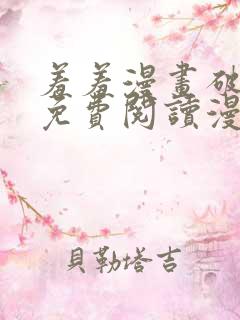 羞羞漫畫破
免費閱讀漫
貝勒塔吉